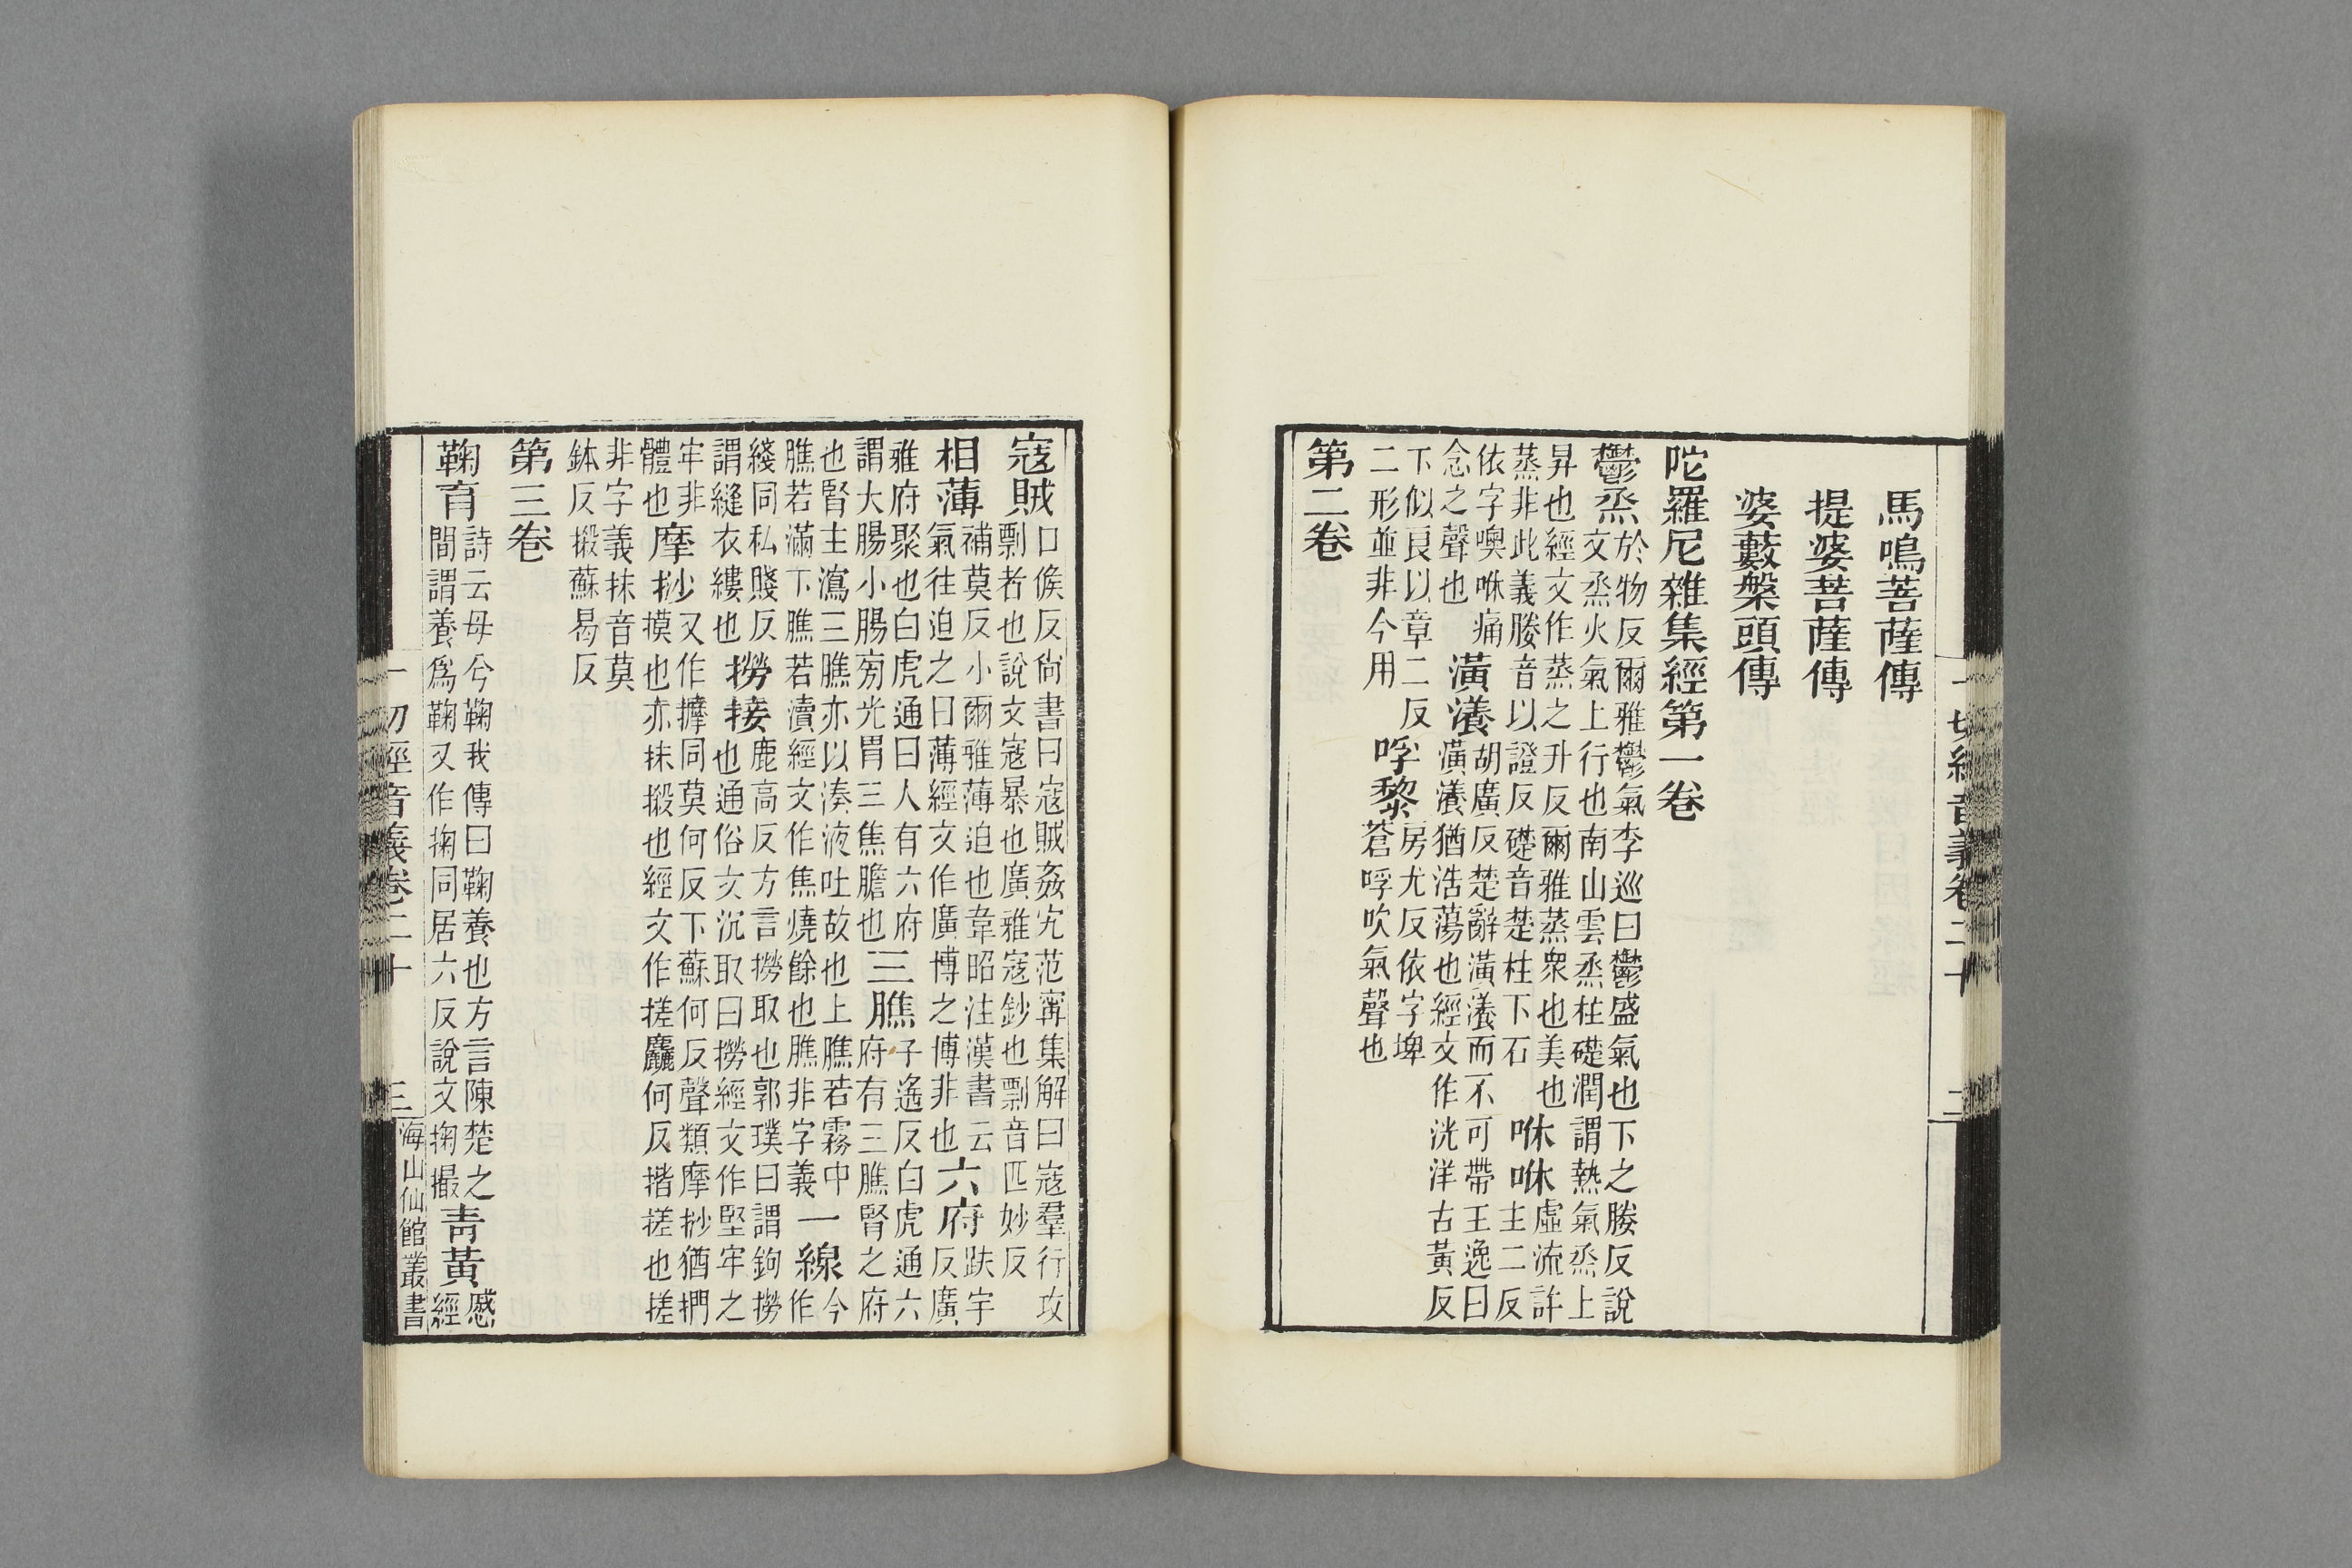 一切經音義卷二十
二
馬鳴菩薩傳
提婆菩薩傳
婆藪槃頭傳
陀羅尼雜集經第一卷
鬱烝
於物反爾雅鬱氣李巡曰鬱盛氣也下之媵反說
文烝火氣上行也南山雲烝柱礎潤謂熱氣烝上
昇也經文作蒸之升反爾雅蒸衆也美也
蒸非此義媵音以證反礎音楚柱下石
咻咻
虛流許
主二反
依字噢咻痛
念之聲也
潢瀁
胡廣反楚辭潢瀁而不可帶王逸曰
潢瀁猶浩蕩也經文作洸洋古黃反
下似良以章二反
二形並非今用
哹黎
房尤反依字埤
蒼哹吹氣聲也
第二卷
寇賊
口候反尙書曰寇賊姦宄范甯集解曰寇羣行攻
剽者也說文寇暴也廣雅寇鈔也剽音匹妙反
相薄
補莫反小爾雅薄迫也韋昭注漢書云
氣往迫之曰薄經文作廣博之博非也
六府
趺宇
反廣
雅府聚也白虎通曰人有六府
謂大腸小腸旁光胃三焦膽也
三膲
子遙反白虎通六
府有三膲腎之府
也腎主瀉三膲亦以湊液吐故也上膲若霧中
膲若滿下膲若瀆經文作焦燒餘也膲非字義
一線
今
作
綫同私賤反
謂縫衣縷也
撈接
鹿高反方言撈取也郭璞曰謂鉤撈
也通俗文沉取曰撈經文作堅牢之
牢非
體也
摩抄
又作攠同莫何反下蘇何反聲類摩抄猶捫
摸也亦抹摋也經文作搓麤何反揩搓也搓
非字義抹音莫
鉢反摋蘇曷反
第三卷
鞠育
詩云母兮鞠我傳曰鞠養也方言陳楚之
間謂養爲鞠又作掬同居六反說文掬撮
靑黃
慼
經
一切經音義卷二十
三
海山仙館叢書